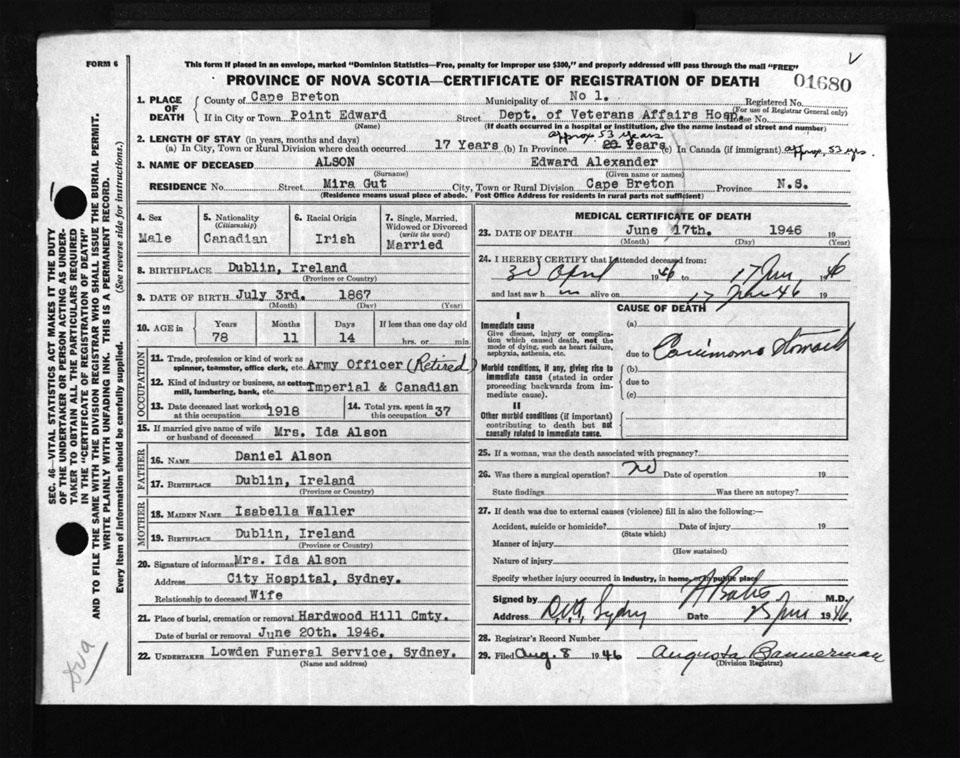 FORM 6
This form if placed in an envelope, marked "Dominion Statistics—Free, penalty for improper use $300," and properly addressed will pass through the mail "FREE"
PROVINCE OF NOVA SCOTIA—CERTIFICATE OF REGISTRATION OF DEATH
01680
1. PLACE OF DEATH
County of Cape Breton Municipality of No 1. Registered No.
(For use of Registrar General only)
If in City or Town Point Edward Street Dept. of Veterans Affairs Hosp. House No.
(Name) (If death occurred in a hospital or institution, give the name instead of street and number)
2. LENGTH OF STAY (in years, months and days)
approx 53 years
(a) In City, Town or Rural Division where death occurred 17 Years (b) In Province 20 Years (c) In Canada (if immigrant) approx, 53 yrs.
3. NAME OF DECEASED ALSON Edward Alexander
(Surname) (Given name or names)
RESIDENCE No. Street Mira Gut City, Town or Rural Division Cape Breton Province N.S.
(Residence means usual place of abode. Post Office Address for residents in rural parts not sufficient)
4. Sex
Male
5. Nationality
(Citizenship)
Canadian
6. Racial Origin
Irish
7. Single, Married, Widowed or Divorced
(write the word)
Married
8. BIRTHPLACE Dublin, Ireland
(Province or Country)
9. DATE OF BIRTH July 3rd. 1867
(Month) (Day) (Year)
10. AGE in
Years Months Days If less than one day old
78 11 14 hrs. or min.
OCCUPATION
11. Trade, profession or kind of work as
spinner, teamster, office clerk, etc. Army Officer (Retired)
12. Kind of industry or business, as cotton
mill, lumbering, bank, etc. Imperial & Canadian
13. Date deceased last worked
at this occupation 1918
14. Total yrs. spent in
this occupation 37
15. If married give name of wife
or husband of deceased Mrs. Ida Alson
FATHER
16. NAME Daniel Alson
17. BIRTHPLACE Dublin, Ireland
(Province or Country)
MOTHER
18. MAIDEN NAME Isabella Waller
19. BIRTHPLACE Dublin, Ireland
(Province or Country)
20. Signature of informant Mrs. Ida Alson
Address City Hospital, Sydney.
Relationship to deceased Wife
21. Place of burial, cremation or removal Hardwood Hill Cmty.
Date of burial or removal June 20th. 1946.
22. UNDERTAKER Lowden Funeral Service, Sydney.
(Name and address)
MEDICAL CERTIFICATE OF DEATH
23. DATE OF DEATH June 17th. 1946 19
(Month) (Day) (Year)
24. I HEREBY CERTIFY that I attended deceased from:
30 April 1946 to 17 June 1946
and last saw h im alive on 17 June 46 19
CAUSE OF DEATH
I
Immediate cause
Give disease, injury or complication which caused death, not the mode of dying, such as heart failure, asphyxia, asthenia, etc.
Morbid conditions, if any, giving rise to immediate cause (stated in order proceeding backwards from immediate cause).
II
Other morbid conditions (if important) contributing to death but not causally related to immediate cause.
(a)
due to Carcinoma Stomach
(b)
due to
(c)
25. If a woman, was the death associated with pregnancy?
26. Was there a surgical operation? no Date of operation 19
State findings Was there an autopsy?
27. If death was due to external causes (violence) fill in also the following:—
Accident, suicide or homicide? Date of injury 19
(State which)
Manner of injury
(How sustained)
Nature of injury
Specify whether injury occurred in industry, in home, or in public place
Signed by M.D.
Address D.V.A. Sydney Date 25 June 1946.
28. Registrar's Record Number
29. Filed Aug. 8 1946 Augusta Bannerman
(Division Registrar)
SEC. 46—VITAL STATISTICS ACT MAKES IT THE DUTY
OF THE UNDERTAKER OR PERSON ACTING AS UNDER-
TAKER TO OBTAIN ALL THE PARTICULARS REQUIRED
IN THE "CERTIFICATE OF REGISTRATION OF DEATH"
AND TO FILE THE SAME WITH THE DIVISION REGISTRAR WHO SHALL ISSUE THE BURIAL PERMIT.
WRITE PLAINLY WITH UNFADING INK. THIS IS A PERMANENT RECORD.
Every item of information should be carefully supplied. (See reverse side for instructions.)
Dva